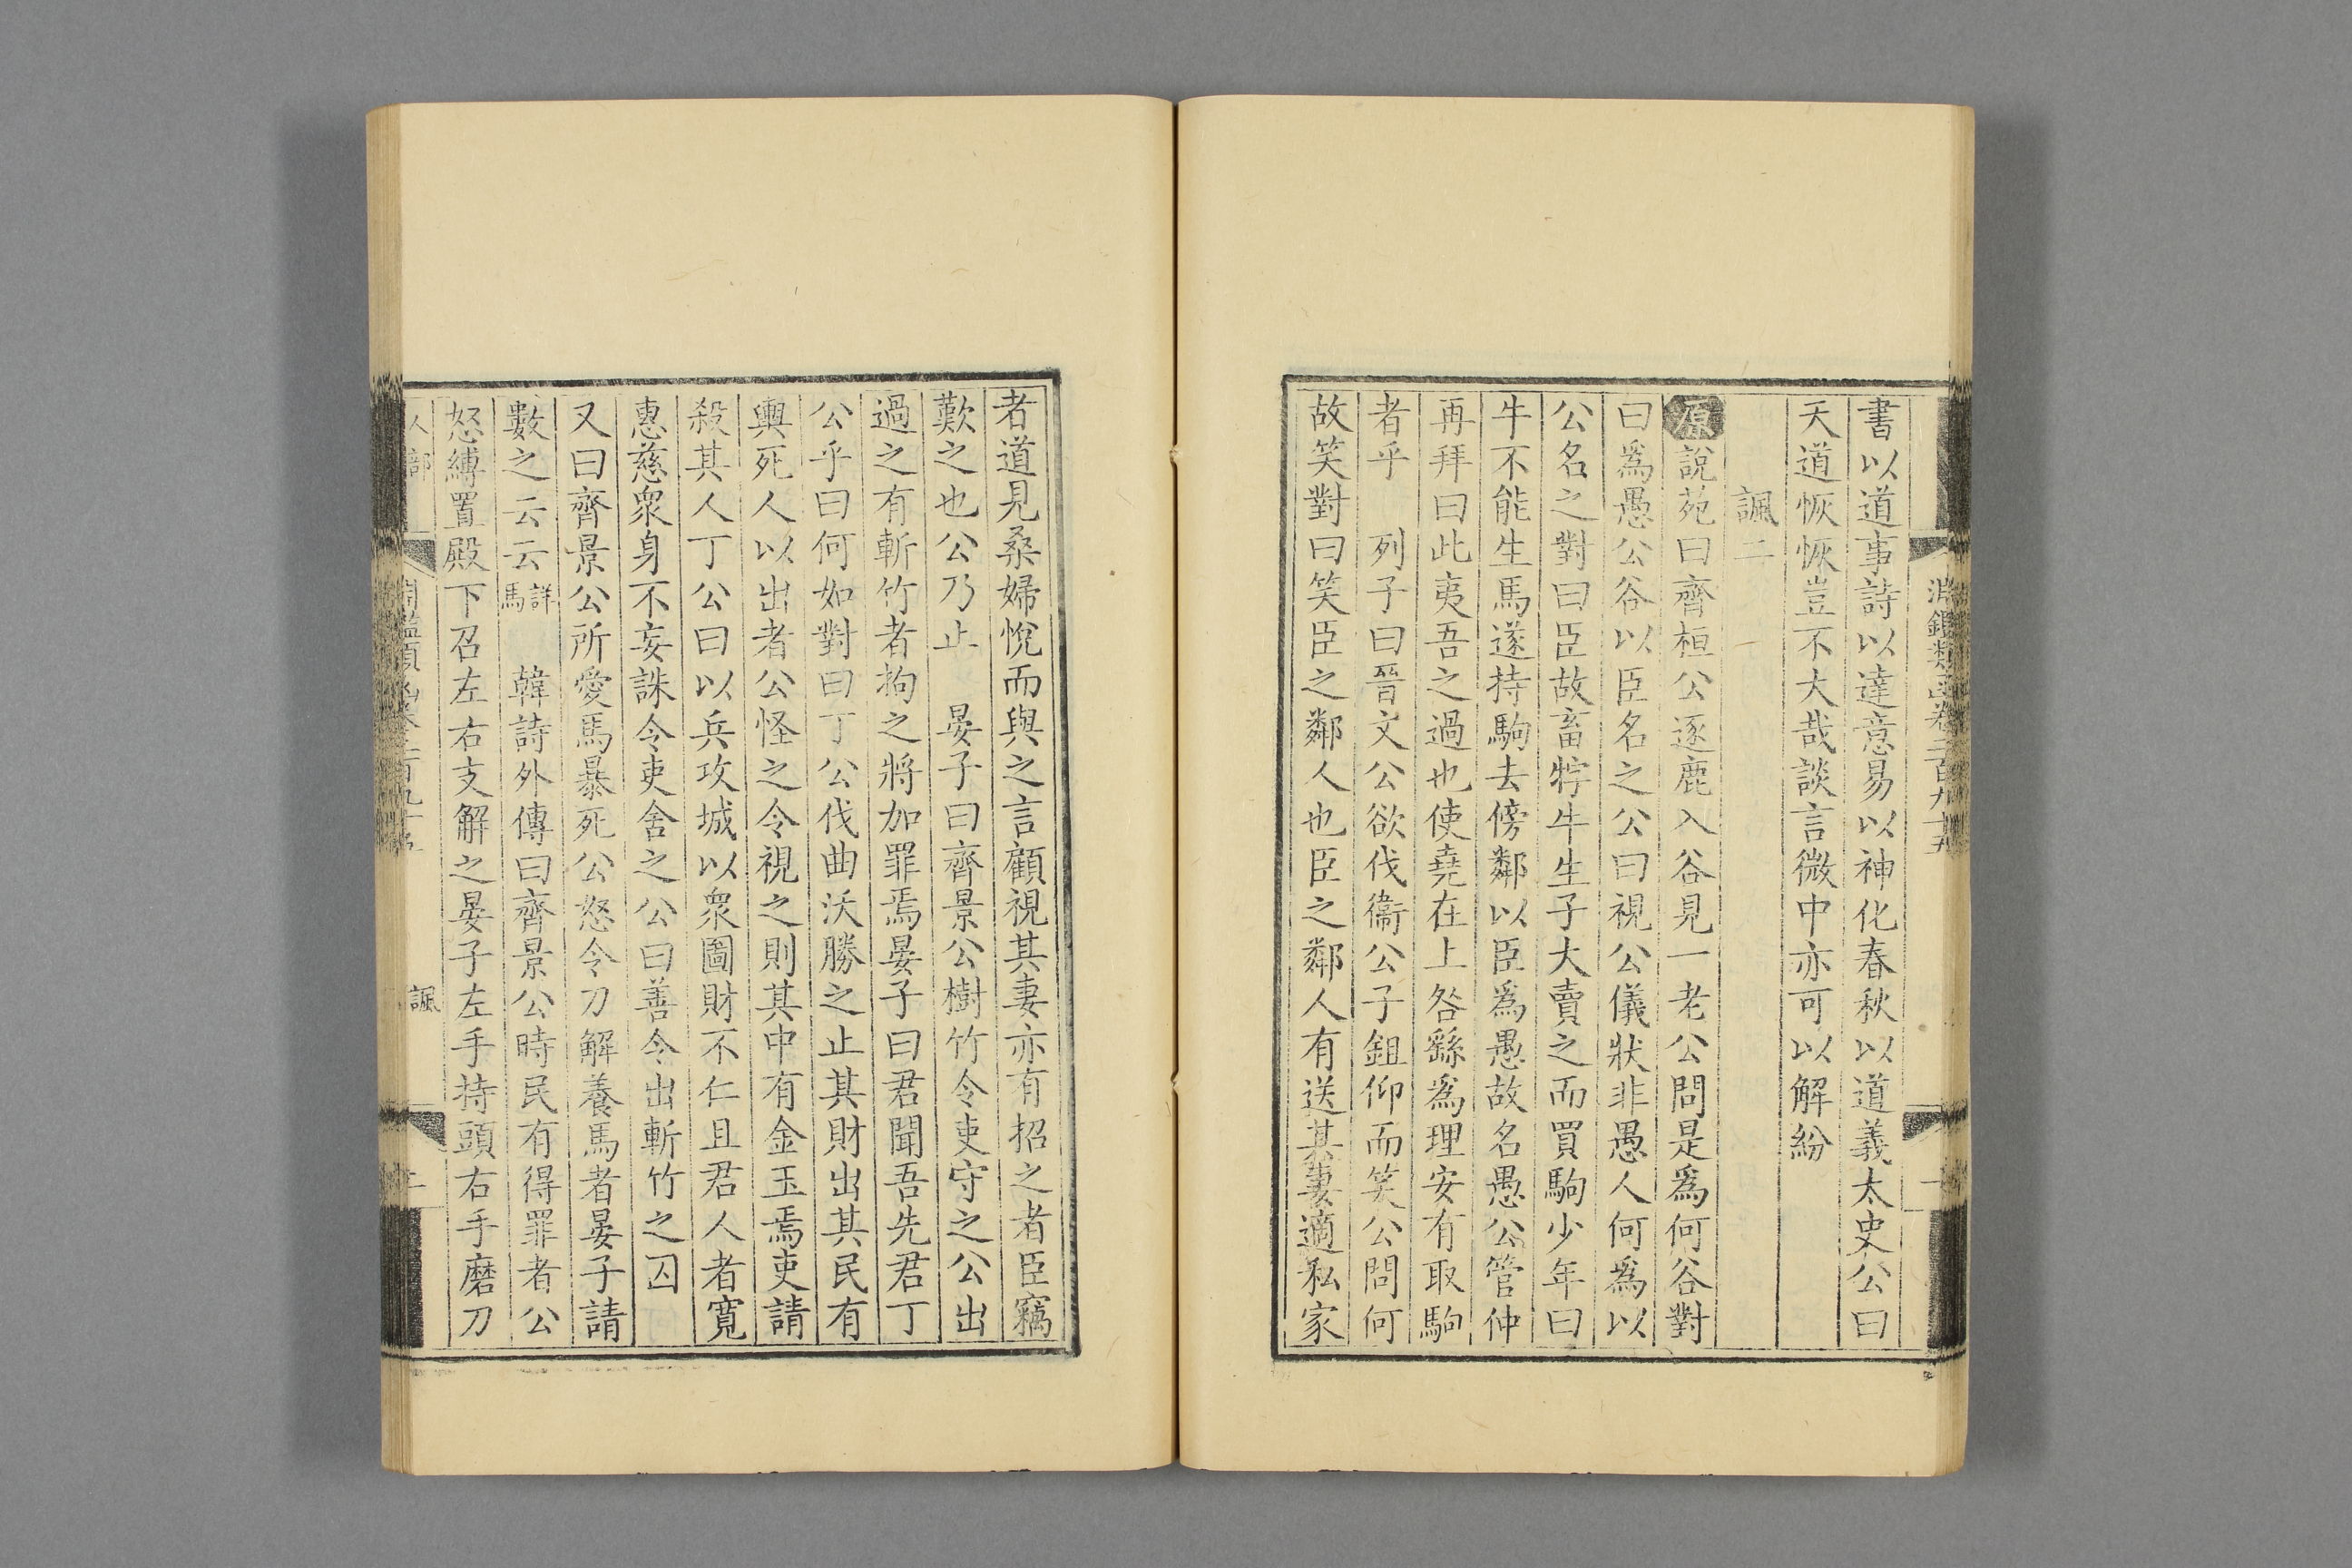 淵鑑類函卷二百九十五
書以道事詩以達意易以神化春秋以道義太史公曰
天道恢恢豈不大哉談言微中亦可以解紛
諷二
原說苑曰齊桓公逐鹿入谷見一老公問是爲何谷對
曰爲愚公谷以臣名之公曰視公儀狀非愚人何爲以
公名之對曰臣故畜牸牛生子大賣之而買駒少年曰
牛不能生馬遂持駒去傍鄰以臣爲愚故名愚公管仲
再拜曰此夷吾之過也使堯在上咎繇爲理安有取駒
者乎 列子曰晉文公欲伐衞公子鉏仰而笑公問何
故笑對曰笑臣之鄰人也臣之鄰人有送其妻適私家
者道見桑婦悅而與之言顧視其妻亦有招之者臣竊
歎之也公乃止 晏子曰齊景公樹竹令吏守之公出
過之有斬竹者拘之將加罪焉晏子曰君聞吾先君丁
公乎曰何如對曰丁公伐曲沃勝之止其財出其民有
輿死人以出者公怪之令視之則其中有金玉焉吏請
殺其人丁公曰以兵攻城以衆圖財不仁且君人者寬
惠慈衆身不妄誅令吏舍之公曰善令出斬竹之囚
又曰齊景公所愛馬暴死公怒令刀解養馬者晏子請
數之云云詳馬 韓詩外傳曰齊景公時民有得罪者公
怒縛置殿下召左右支解之晏子左手持頭右手磨刀
人部 諷